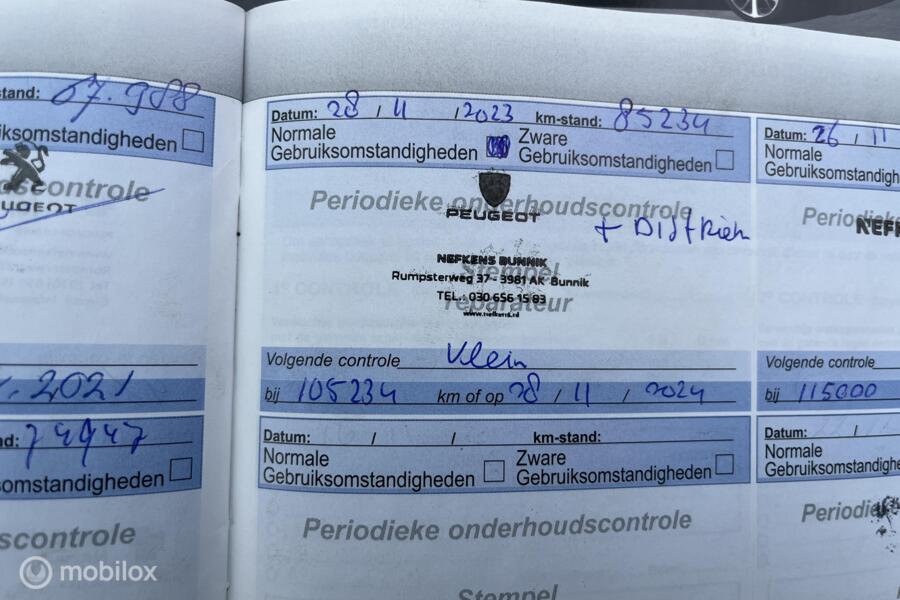 stand: 67.988
iksomstandigheden
dscontrole
UGEOT
.2021
nd: 74947
somstandigheden
scontrole
Datum: 28 / 11 / 2023 km-stand: 85234
Normale Gebruiksomstandigheden
Zware Gebruiksomstandigheden
Periodieke onderhoudscontrole
PEUGEOT
+ Distrien
NEFKENS BUNNIK
Stempel
Rumpsterweg 37 - 3981 AK Bunnik
TEL.: 030 656 15 83
reparateur
www.nefkens.nl
Volgende controle Klein
bij 105234 km of op 28 / 11 / 2024
Datum: / / km-stand:
Normale Gebruiksomstandigheden
Zware Gebruiksomstandigheden
Periodieke onderhoudscontrole
Stempel
Datum: 26 / 11
Normale
Gebruiksomstandighe
Periodie
NEFK
Volgende controle
bij 115000
Datum: /
Normale
Gebruiksomstandighe
Periodie
mobilox